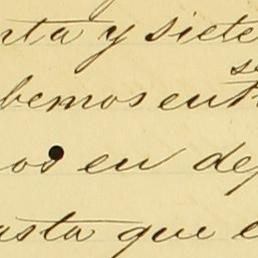 nta y siete
bemos ent
os en dep
asta que e